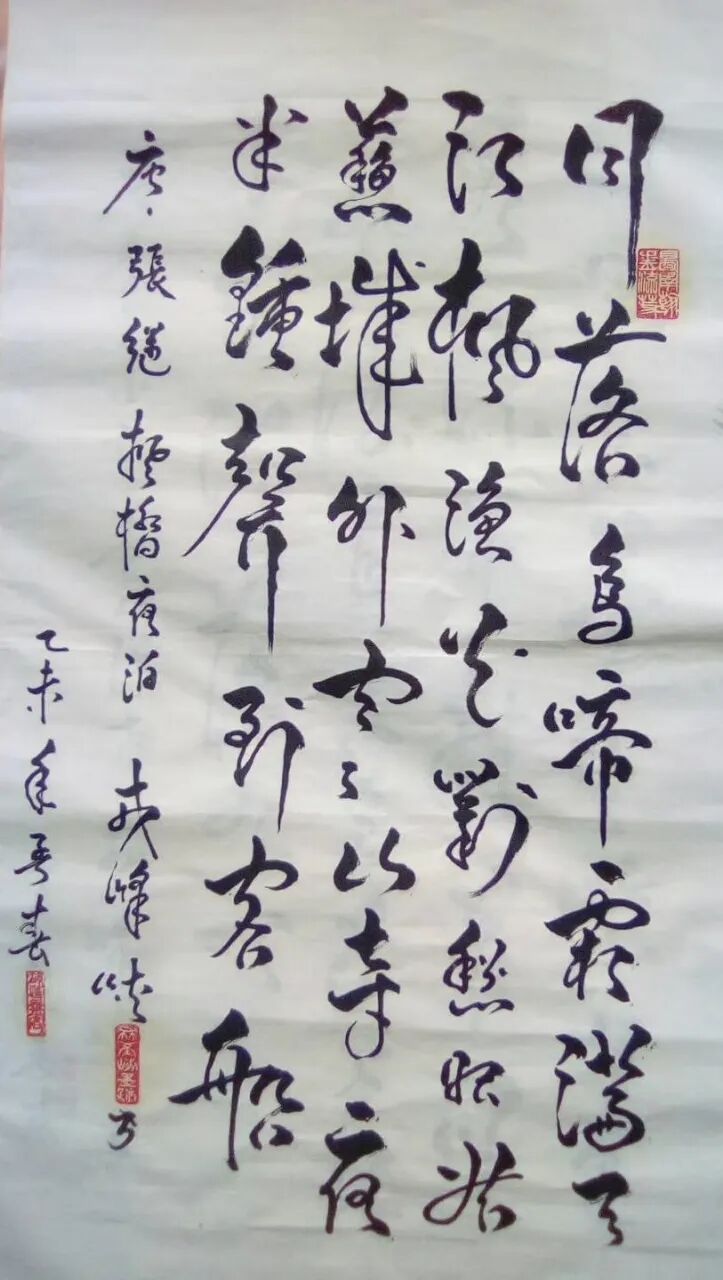 月落烏啼霜滿天
江楓漁火對愁眠姑
蘇城外寒山寺夜
半鐘聲到客船
唐、張繼楓橋夜泊
乙未年孟春